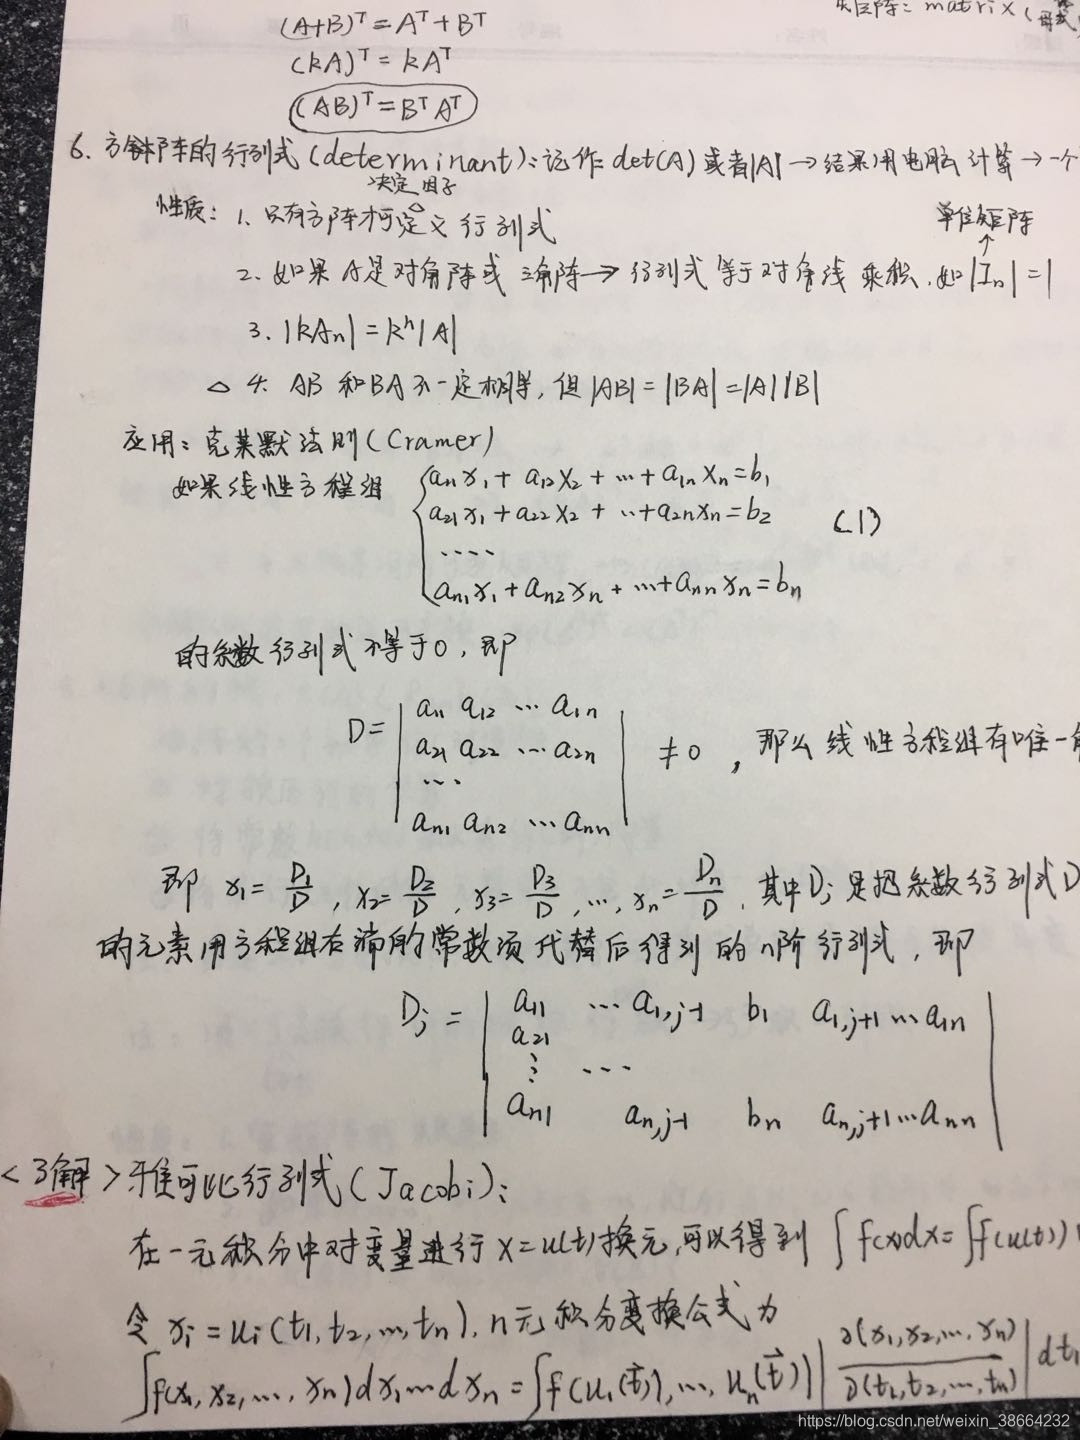 矩阵: matrix (
(A+B)ᵀ = Aᵀ + Bᵀ
(kA)ᵀ = kAᵀ
(AB)ᵀ = BᵀAᵀ
6. 方阵的行列式 (determinant): 记作 det(A) 或者|A| → 结果用电脑计算 → 一个
决定因子
性质: 1. 只有方阵才可定义行列式
单位矩阵
2. 如果A是对角阵或三角阵 → 行列式等于对角线乘积. 如|Iₙ| = 1
3. |kAₙ| = kⁿ|A|
△ 4. AB 和BA不一定相等, 但 |AB| = |BA| = |A||B|
应用: 克莱默法则 (Cramer)
如果线性方程组 a₁₁x₁ + a₁₂x₂ + … + a₁ₙxₙ = b₁
a₂₁x₁ + a₂₂x₂ + … + a₂ₙxₙ = b₂ (1)
....
aₙ₁x₁ + aₙ₂xₙ + … + aₙₙxₙ = bₙ
的系数行列式不等于0, 即
a₁₁ a₁₂ … a₁ₙ
D = a₂₁ a₂₂ … a₂ₙ ≠ 0 , 那么线性方程组有唯一
...
aₙ₁ aₙ₂ … aₙₙ
即 x₁ = D₁/D , x₂ = D₂/D , x₃ = D₃/D , …, xₙ = Dₙ/D , 其中Dⱼ是把系数行列式D
的元素用方程组右端的常数项代替后得到的n阶行列式, 即
Dⱼ = a₁₁ … a₁,ⱼ₋₁ b₁ a₁,ⱼ₊₁ … a₁ₙ
a₂₁
⋮ ...
aₙ₁ aₙ,ⱼ₋₁ bₙ aₙ,ⱼ₊₁ … aₙₙ
<了解> 雅可比行列式 (Jacobi):
在一元积分中对变量进行 x = u(t) 换元, 可以得到 ∫f(x)dx = ∫f(u(t))
令 xᵢ = uᵢ(t₁, t₂, …, tₙ), n元积分变换公式为
∫f(x₁, x₂, …, xₙ)dx₁…dxₙ = ∫f(u₁(t⃗), …, uₙ(t⃗)) |∂(x₁, x₂, …, xₙ)/∂(t₁, t₂, …, tₙ)| dt₁
https://blog.csdn.net/weixin_38664232